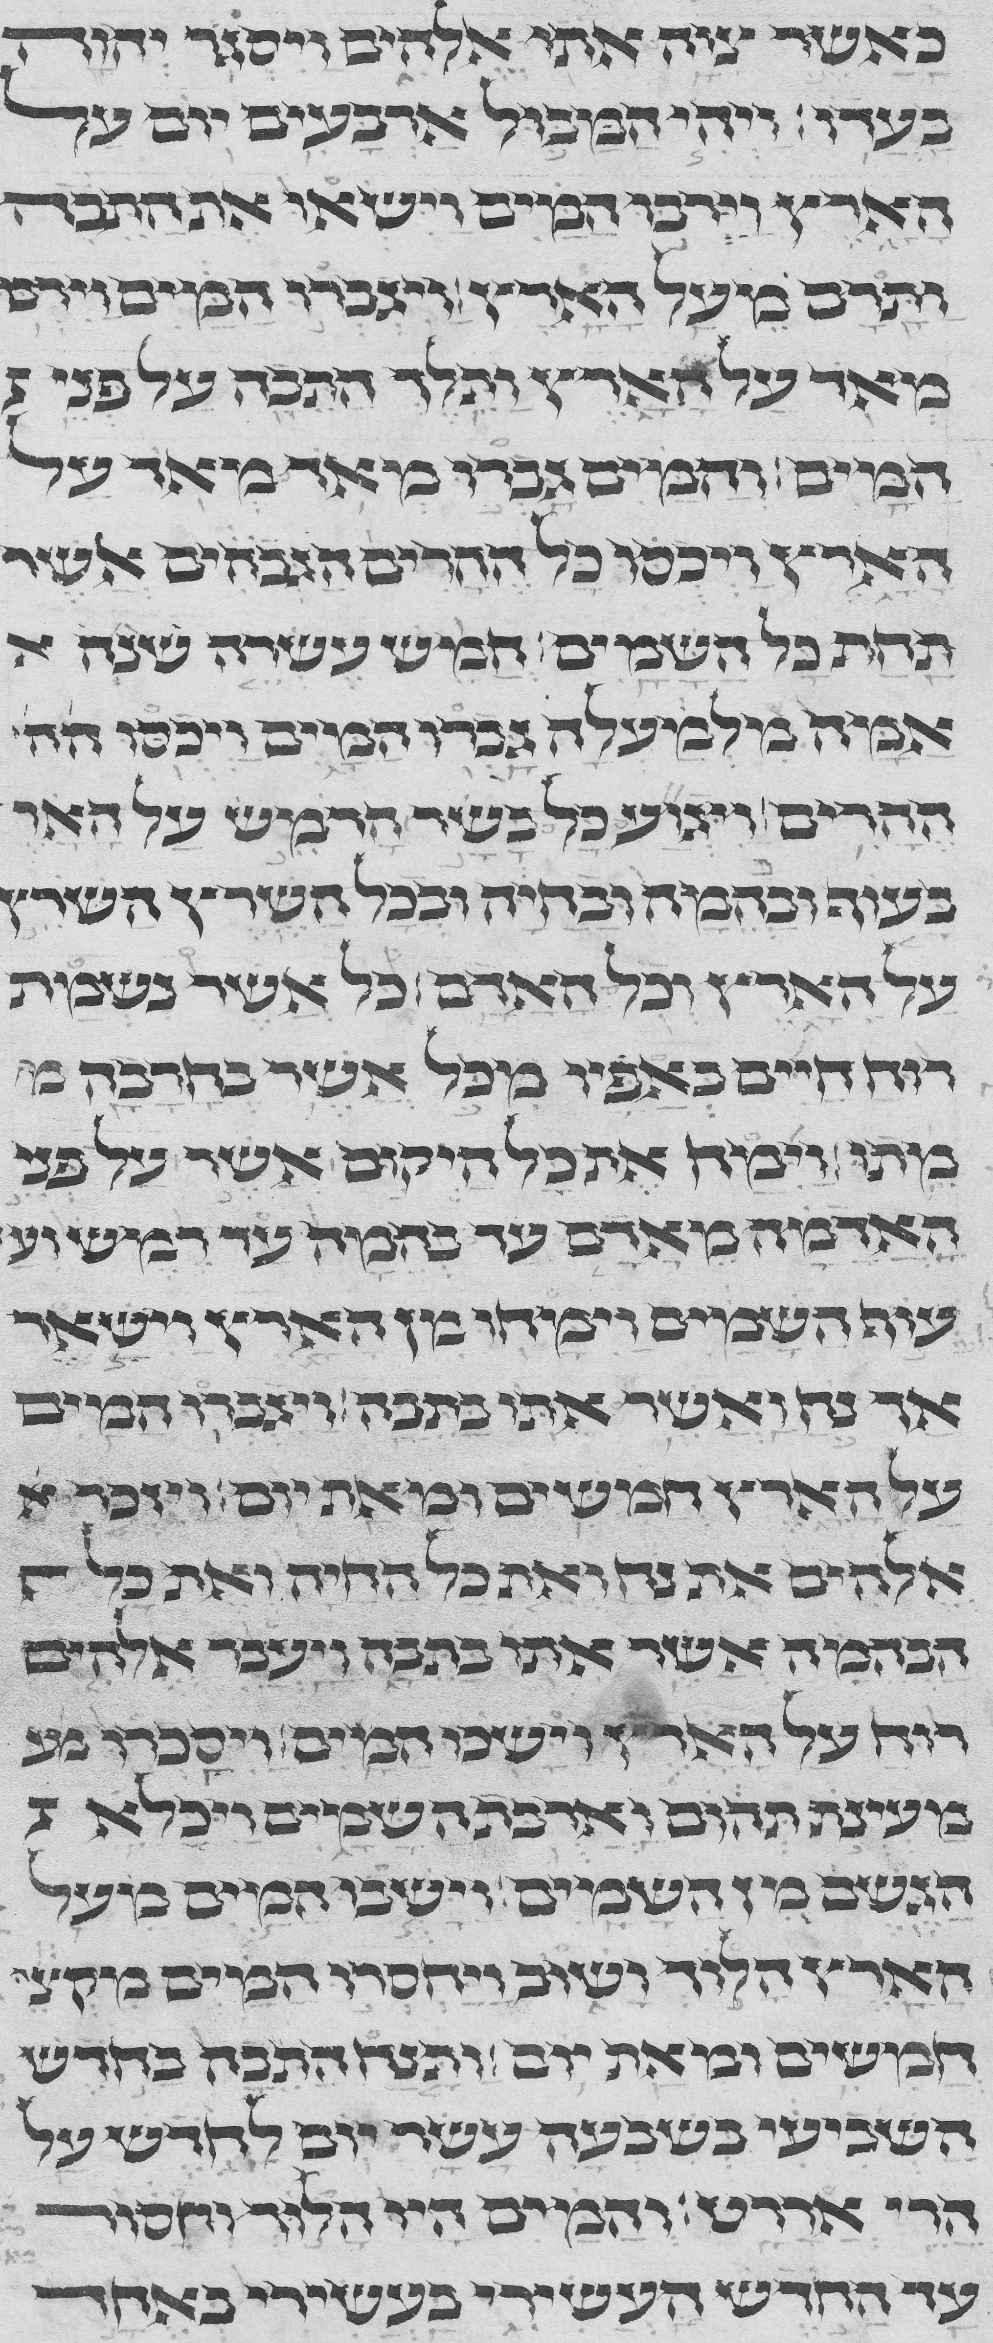 כאשר צוה אתו אלהים ויסגר יהוה
בעדו ויהי המבול ארבעים יום על
הארץ וירבו המים וישאו את התבה
ותרם מעל הארץ ויגברו המים וירבו
מאד על הארץ ותלך התבה על פני
המים והמים גברו מאד מאד על
הארץ ויכסו כל ההרים הגבהים אשר
תחת כל השמים חמש עשרה שנה א
אמה מלמעלה גברו המים ויכסו הה
ההרים ויגוע כל בשר הרמש על האר
בעוף ובהמה ובחיה ובכל השרץ השרץ
על הארץ וכל האדם כל אשר נשמת
רוח חיים באפיו מכל אשר בחרבה מ
מתו וימח את כל היקום אשר על פנ
האדמה מאדם עד בהמה עד רמש ועד
עוף השמים וימחו מן הארץ וישאר
אך נח ואשר אתו בתבה ויגברו המים
על הארץ חמשים ומאת יום ויזכר א
אלהים את נח ואת כל החיה ואת כל ה
הבהמה אשר אתו בתבה ויעבר אלהים
רוח על הארץ וישכו המים ויסכרו מע
מעינת תהום וארבת השמים ויכלא
הגשם מן השמים וישבו המים מעל
הארץ הלוך ושוב ויחסרו המים מקצ
חמשים ומאת יום ותנח התבה בחדש
השביעי בשבעה עשר יום לחדש על
הרי אררט והמים היו הלוך וחסור
עד החדש העשירי בעשירי באחד